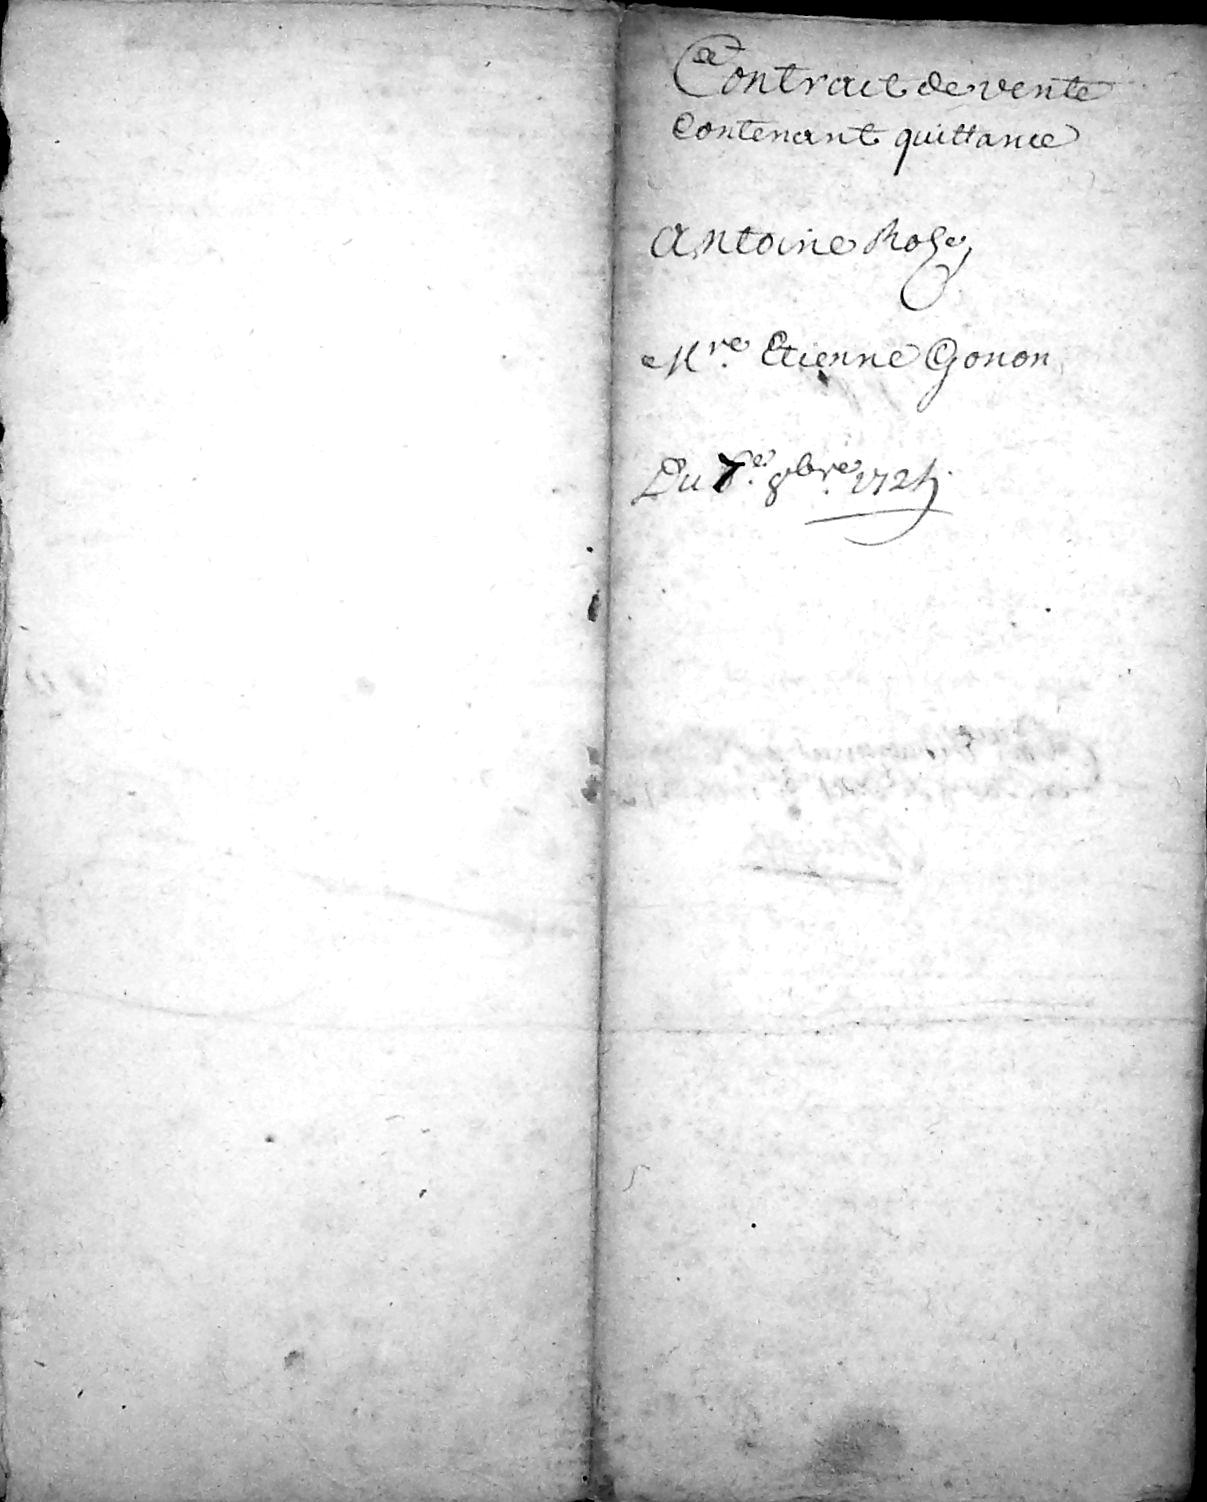 Contract de vente
Contenant quittance
Antoine
Mre. Etienne Gonon
Du 7e. 8bre. 1724